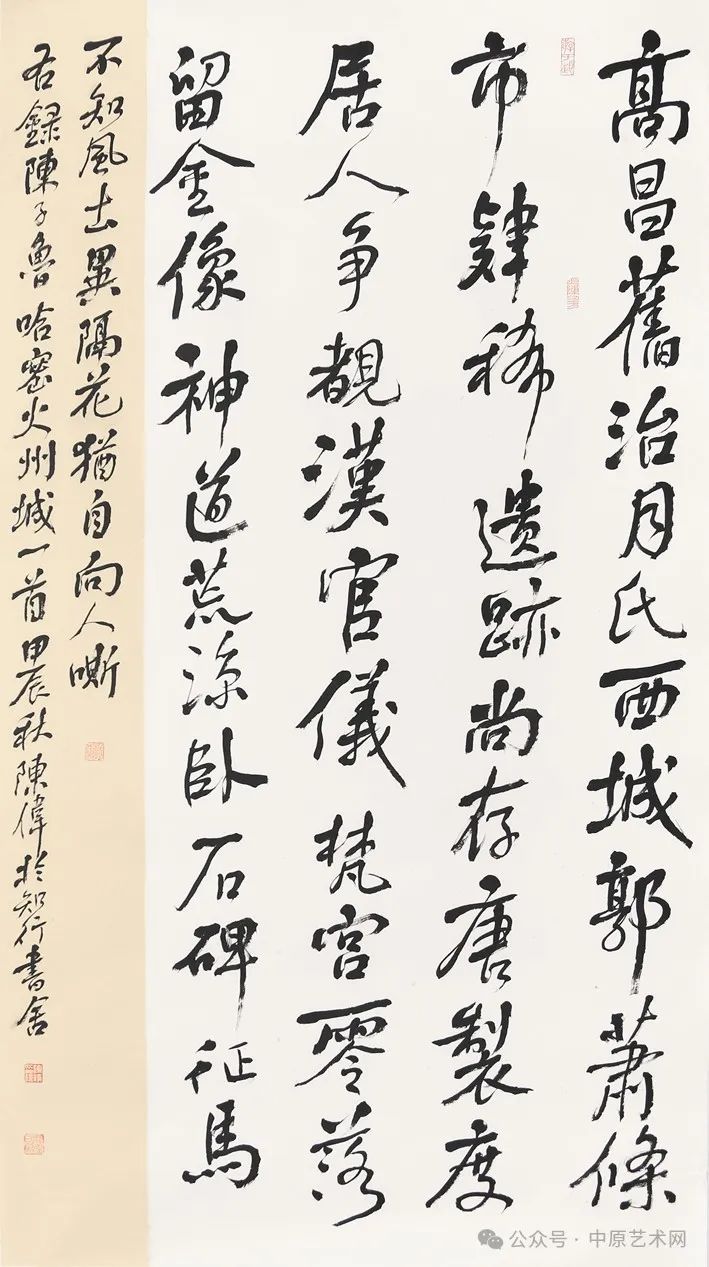 高昌舊治月氏西城郭蕭條
市肆稀遺跡尚存唐製度
居人争覩漢官儀梵宫零落
留金像神道荒涼卧石碑征馬
不知風土異隔花猶自向人嘶
右録陳子魯哈密火州城一首甲辰秋陳偉於知行書舍
公众号·中原艺术网